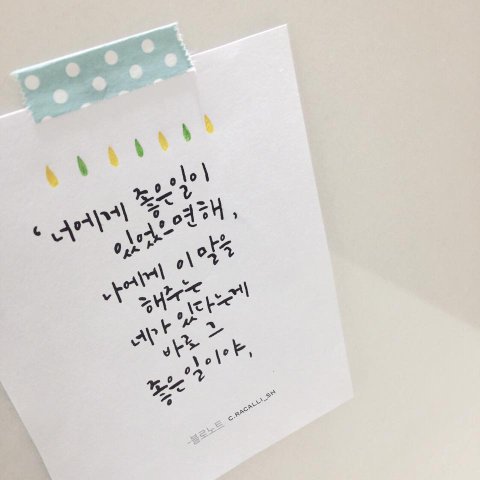 ‘너에게 좋은일이
있었으면해,
나에게 이 말을
해주는
네가 있다는게
바로 그
좋은일이야,
-블로노트 C.RACALLI_SH